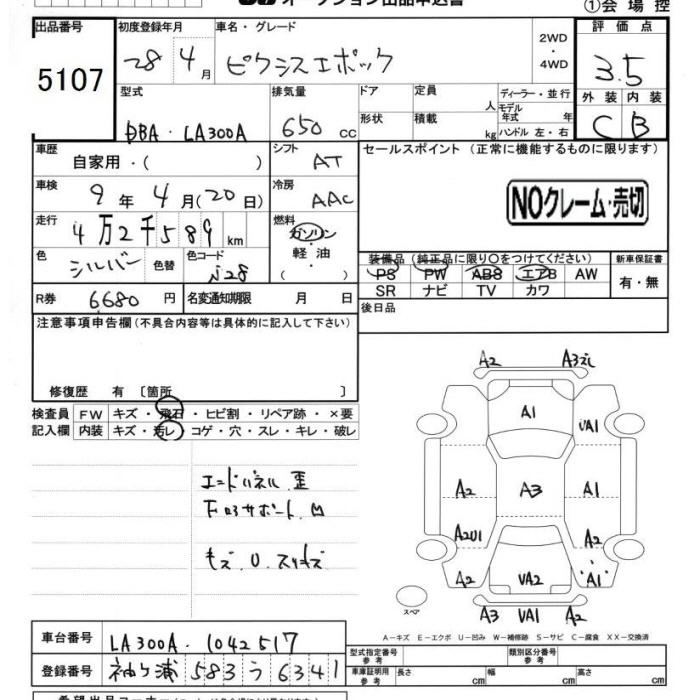 オークション出品申込書 ①会場控
出品番号 初度登録年月 車名・グレード 2WD・4WD 評価点
5107 28 4月 ピクシスエポック 3.5
型式 排気量 ドア 定員 人 ディーラー・並行 外装 内装
DBA・LA300A 650cc 形状 積載 kg モデル年式 年 ハンドル 左・右 C B
車歴 自家用・( ) シフト AT セールスポイント (正常に機能するものに限ります)
車検 9年4月(20日) 冷房 AAC NOクレーム・売切
走行 4万2千589km 燃料 ガソリン・軽油・( )
色 シルバー 色替 色コード S28 装備品 (純正品に限り○をつけてください) 新車保証書
PS PW ABS エアB AW 有・無
SR ナビ TV カワ
R券 6680円 名変通知期限 月 日 後日品
注意事項申告欄(不具合内容等は具体的に記入して下さい)
修復歴 有 〔箇所 〕
検査員 FW キズ・飛石・ヒビ割・リペア跡・×要
記入欄 内装 キズ・汚レ・コゲ・穴・スレ・キレ・破レ
エンドパネル歪
下回サポートM
キズ、U、スリキズ
A2 A3
A1 UA1
A2 A3 A1
A2U1 A2
A2 UA2 A1
スペア
A3 UA1 A2
A−キズ E−エクボ U−凹み W−補修跡 S−サビ C−腐食 XX−交換済
車台番号 LA300A-1042517 型式指定番号 参考 類別区分番号 参考
登録番号 袖ヶ浦 583 う 6341 車庫証明用 参考 長さ cm 幅 cm 高さ cm